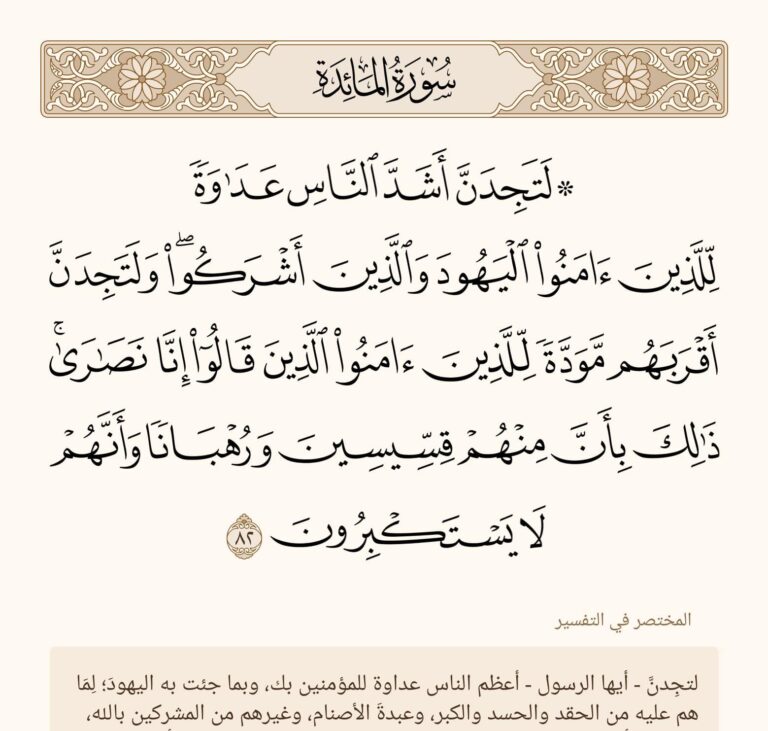 سُورَةُ المَائِدَةِ
۞ لَتَجِدَنَّ أَشَدَّ ٱلنَّاسِ عَدَٰوَةٗ
لِّلَّذِينَ ءَامَنُواْ ٱلۡيَهُودَ وَٱلَّذِينَ أَشۡرَكُواْۖ وَلَتَجِدَنَّ
أَقۡرَبَهُم مَّوَدَّةٗ لِّلَّذِينَ ءَامَنُواْ ٱلَّذِينَ قَالُوٓاْ إِنَّا نَصَٰرَىٰۚ
ذَٰلِكَ بِأَنَّ مِنۡهُمۡ قِسِّيسِينَ وَرُهۡبَانٗا وَأَنَّهُمۡ
لَا يَسۡتَكۡبِرُونَ ٨٢
المختصر في التفسير
لتجِدنَّ - أيها الرسول - أعظم الناس عداوة للمؤمنين بك، وبما جئت به اليهودَ؛ لِمَا
هم عليه من الحقد والحسد والكبر، وعبدةَ الأصنام، وغيرهم من المشركين بالله،